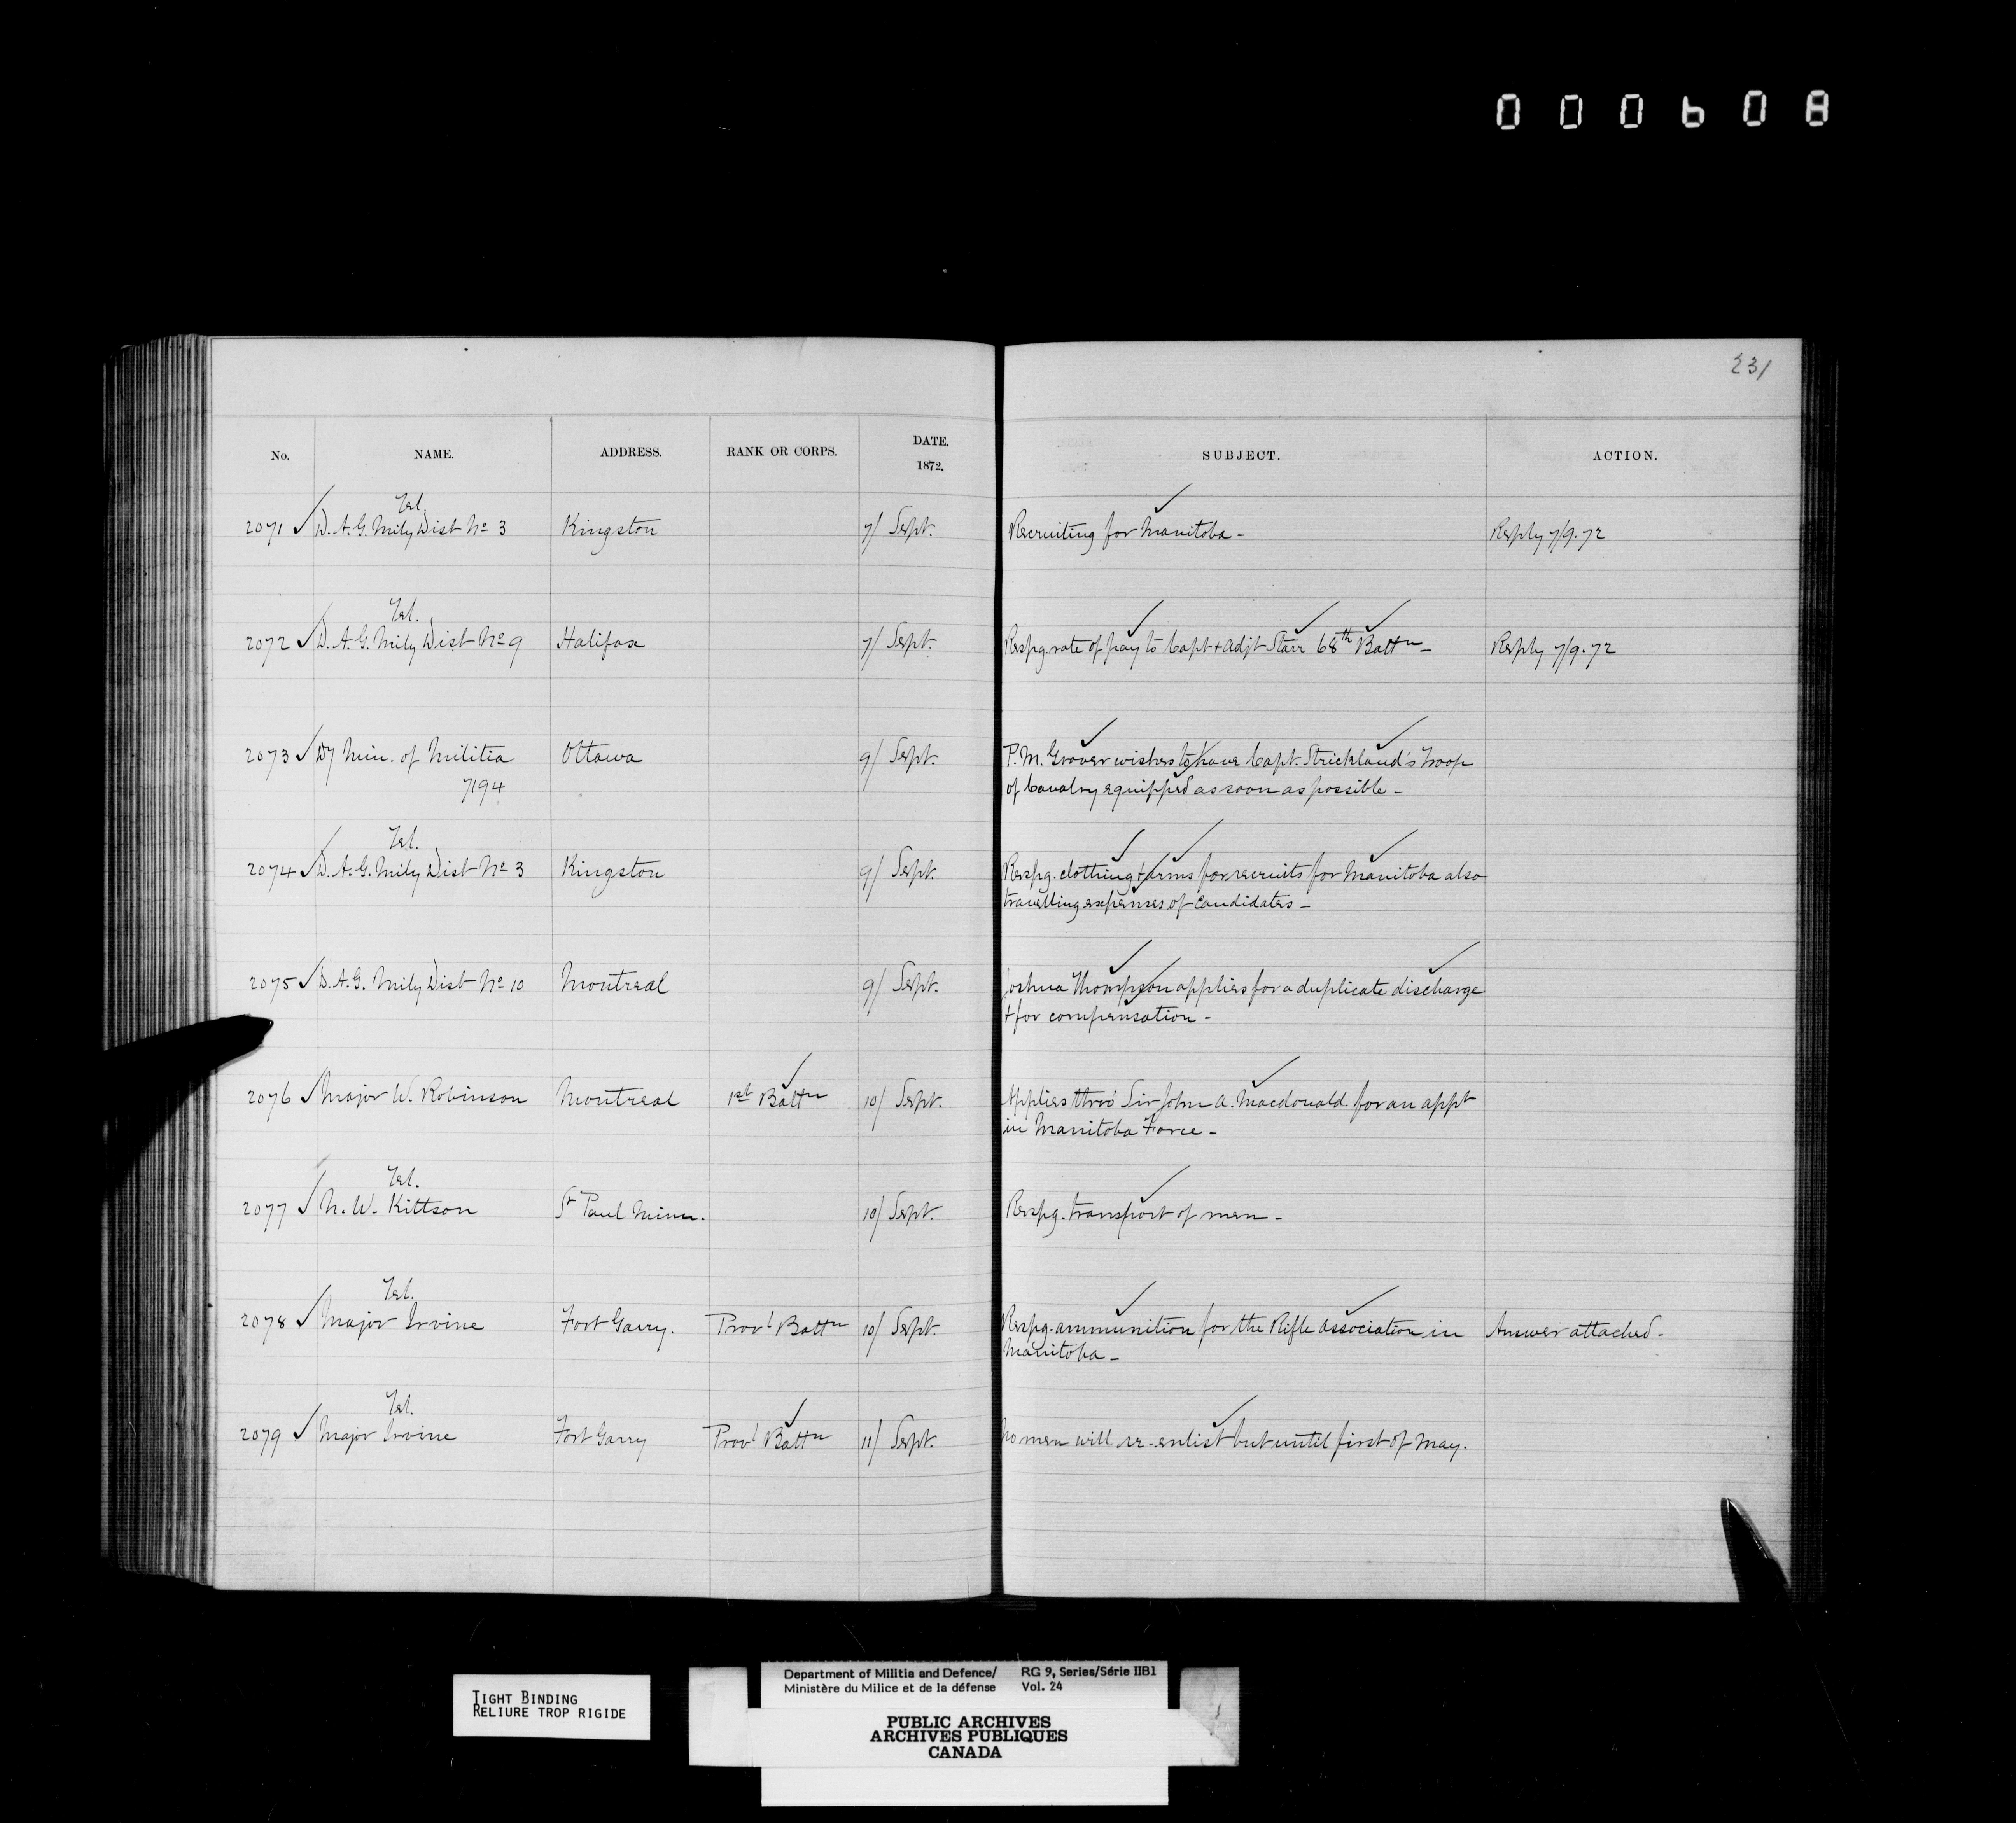 000608
231
No. NAME. ADDRESS. RANK OR CORPS. DATE. 1872. SUBJECT. ACTION.
Tel.
2071 D. A. G. Mily Dist No 3 Kingston 7/ Sept. Recruiting for Manitoba - Reply 7/9.72
Tel.
2072 D. A. G. Mily Dist No 9 Halifax 7/ Sept. Respg. rate of pay to Capt + Adjt Starr 68th Battn - Reply 7/9.72
2073 Dy Min. of Militia Ottawa 9/ Sept. P. M. Grover wishes to have Capt. Strickland's Troop
7194 of Cavalry equipped as soon as possible -
Tel.
2074 D. A. G. Mily Dist No 3 Kingston 9/ Sept. Respg. clothing + arms for recruits for Manitoba also
travelling expenses of candidates -
2075 D. A. G. Mily Dist No 10 Montreal 9/ Sept. Joshua Thompson applies for a duplicate discharge
+ for compensation -
2076 Major W. Robinson Montreal 1st Battn 10/ Sept. Applies thro' Sir John A. Macdonald for an appt
in Manitoba Force -
Tel.
2077 N. W. Kittson St Paul Minn. 10/ Sept. Respg. transport of men -
Tel.
2078 Major Irvine Fort Garry. Provl Battn 10/ Sept. Respg. ammunition for the Rifle Association in Answer attached -
Manitoba -
Tel.
2079 Major Irvine Fort Garry Provl Battn 11/ Sept. No men will re-enlist but until first of May.
TIGHT BINDING
RELIURE TROP RIGIDE
Department of Militia and Defence/ RG 9, Series/Série IIB1
Ministère du Milice et de la défense Vol. 24
PUBLIC ARCHIVES
ARCHIVES PUBLIQUES
CANADA